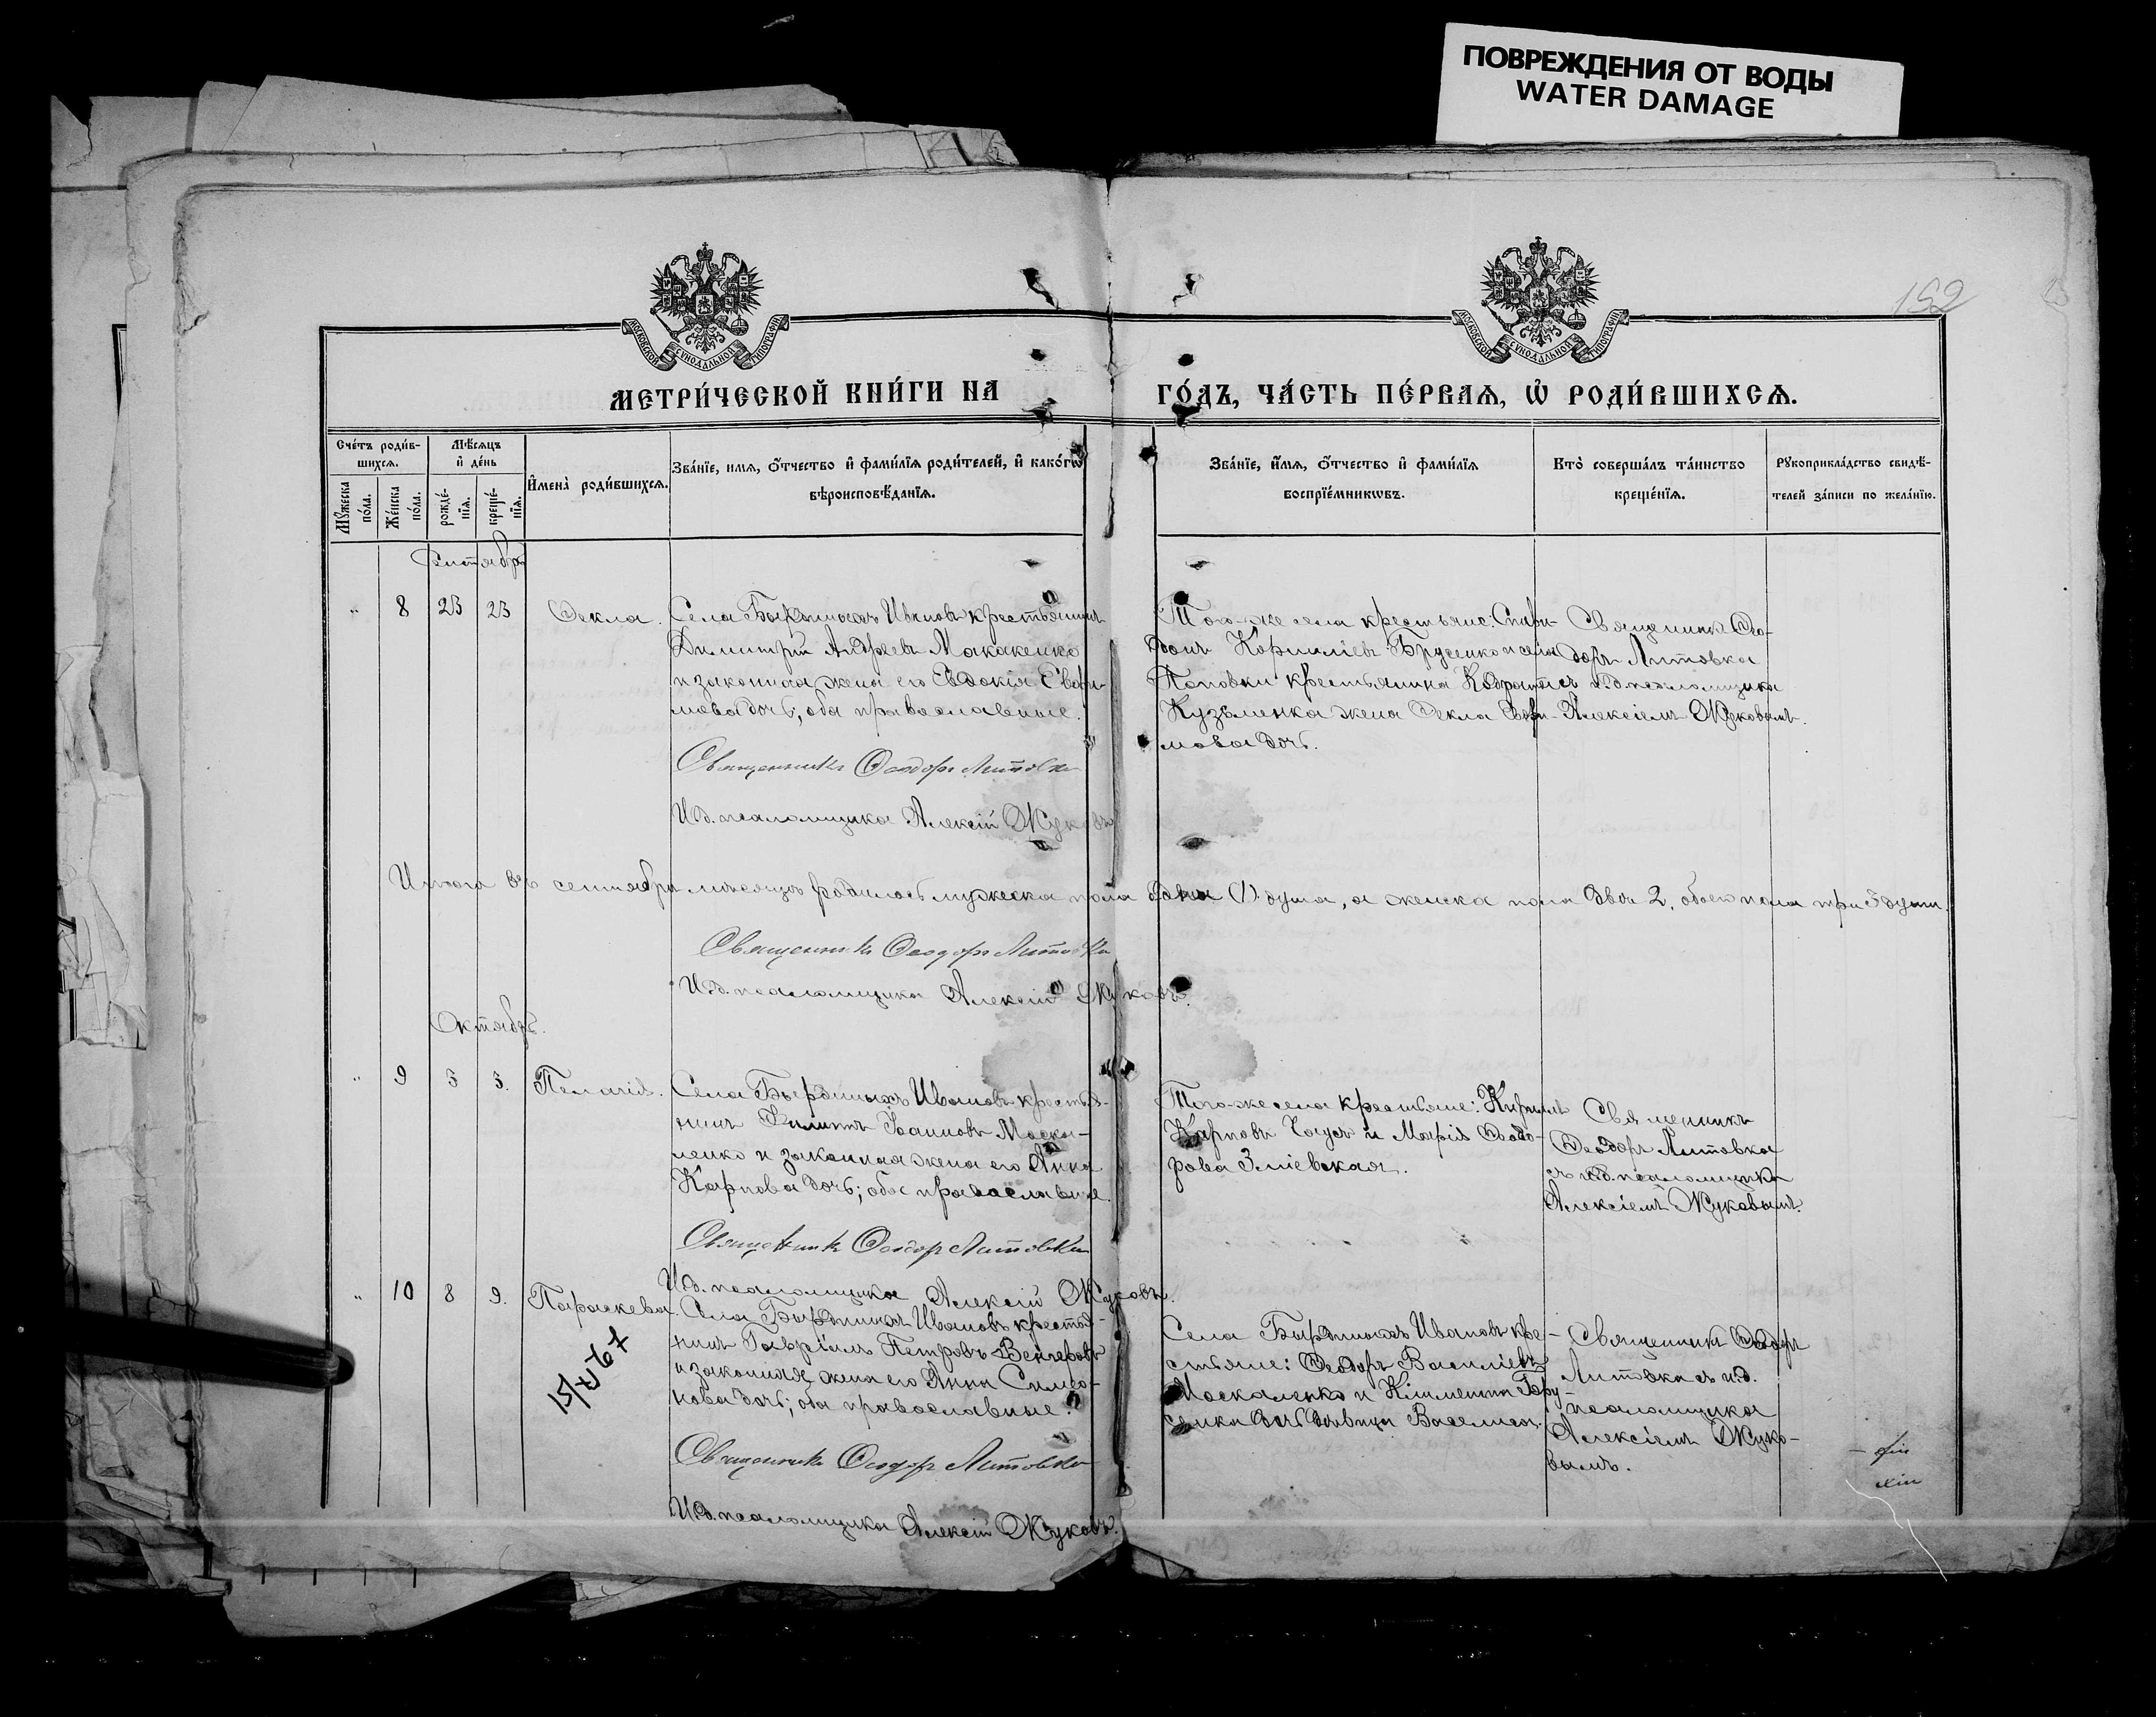 ПОВРЕЖДЕНИЯ ОТ ВОДЫ
WATER DAMAGE
152
МОСКОВСКОЙ СѴНОДАЛЬНОЙ ТИПОГРАФІИ
МОСКОВСКОЙ СѴНОДАЛЬНОЙ ТИПОГРАФІИ
МЕТРИ́ЧЕСКОЙ КНИ́ГИ НА
ГО́ДЪ, ЧА́СТЬ ПЕ́РВАѦ, Ѡ҆ РОДИ́ВШИХСѦ.
Сче́тъ роди́в-
шихсѧ.
Мѣ́сѧцъ
и҆ де́нь
Мꙋ́жеска по́ла.
Же́нска по́ла.
рожде́-
нїѧ.
креще́-
нїѧ.
И҆мена̀ роди́вшихсѧ.
Зва́нїе, имѧ, ѻ҆́тчество и҆ фами́лїѧ роди́телей, и҆ како́гѡ
вѣроисповѣ́данїѧ.
Зва́нїе, и҆́мѧ, ѻ҆́тчество и҆ фами́лїѧ
воспрїе́мникѡвъ.
Кто̀ соверша́лъ та́инство
креще́нїѧ.
Рꙋкоприкла́дство свидѣ́-
телей за́писи по жела́нїю.
Сентябрь
" 8 23 23 Ѳекла.
Села Ивановъ крестьянинъ
Димитрій Андреевъ Макаренко
и законная жена его Евдокія Евѳи-
мова дочь; оба православные.
Священникъ Ѳеодоръ Литовка
И.д. псаломщика Алексій Жуковъ
Того-же села крестьянс. Спири-
донъ Корниліевъ Брусенко и села
Поповки крестьянина Кодрата
Кузьменка жена Ѳекла Евѳи-
мова дочь.
Священникъ Ѳео-
доръ Литовка
съ и.д. псаломщика
Алексіемъ Жуковымъ.
Итого въ сентябрѣ мѣсяцѣ родилось мужеска пола одна (1) душа, а женска пола двѣ 2, обоего пола три 3 души.
Священникъ Ѳеодоръ Литовка
И.д. псаломщика Алексій Жуковъ.
Октябрь.
" 9 3 3. Пелагія.
Села Ивановъ крестья-
нинъ Филиппъ Іоанновъ Моска-
ленко и законная жена его Анна
Карпова дочь; оба православные.
Священникъ Ѳеодоръ Литовка
И.д. псаломщика Алексій Жуковъ.
Того-же села крестьяне: Кириллъ
Карповъ Чаусъ и Марія Ѳеодо-
рова Зміевская.
Священникъ
Ѳеодоръ Литовка
съ и.д. псаломщика
Алексіемъ Жуковымъ.
" 10 8 9. Параскева.
15/XI 67
Села Ивановъ крестья-
нинъ Гавріилъ Петровъ Венгеровъ
и законная жена его Анна Симео-
нова дочь; оба православные.
Священникъ Ѳеодоръ Литовка
И.д. псаломщика Алексій Жуковъ.
Села Ивановъ кре-
стьяне: Ѳеодоръ Василіевъ
Москаленко и Климента Бру-
сенка дочь дѣвица Василиса.
Священникъ Ѳеодоръ
Литовка съ и.д.
псаломщика
Алексіемъ Жуко-
вымъ.